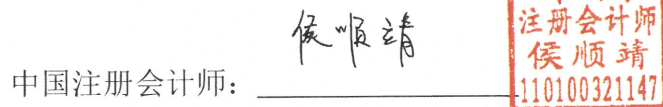 侯顺靖
中国注册会计师：
注册会计师
侯顺靖
110100321147